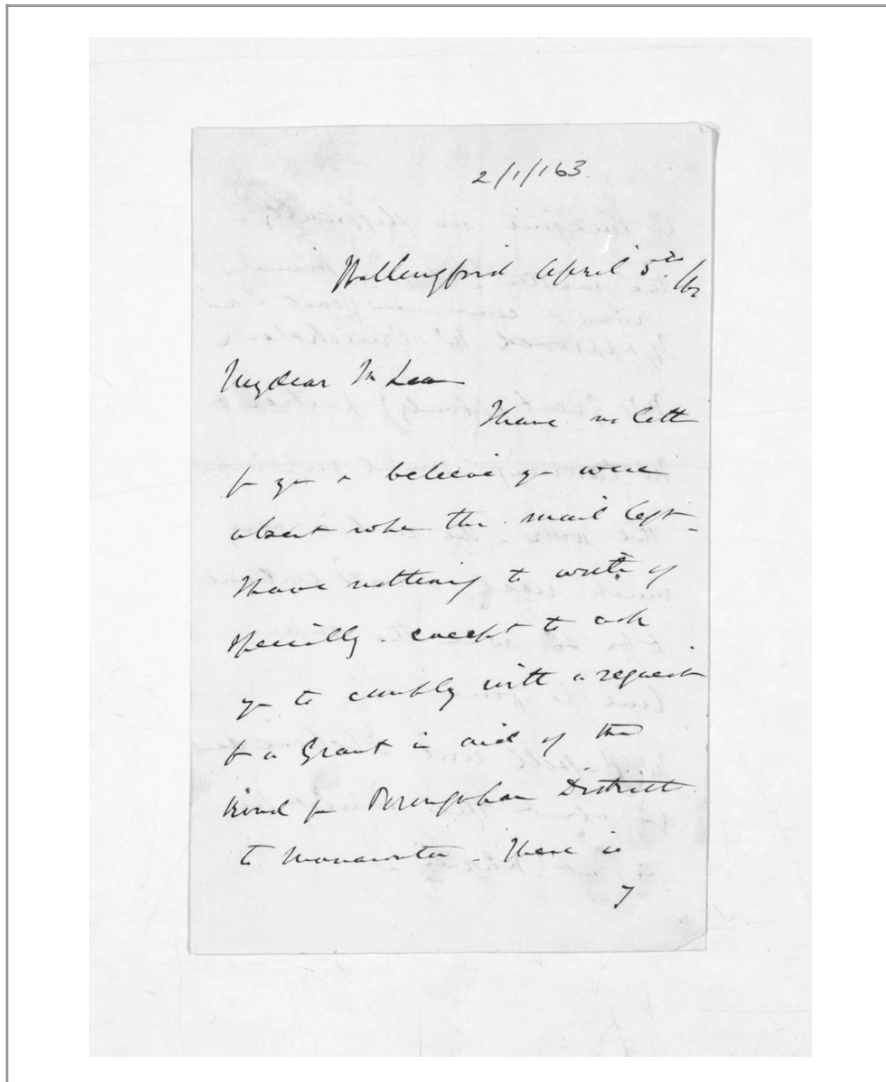 2/1/163.
Wallingford April 5th/62
My dear McLean
I have no lett
fr you & believe you were
absent when the mail left -
I have nothing to write of
specially except to ask
you to comply with a request
for a Grant in aid of the
road fr Porangahau District
to Manawatu - There is